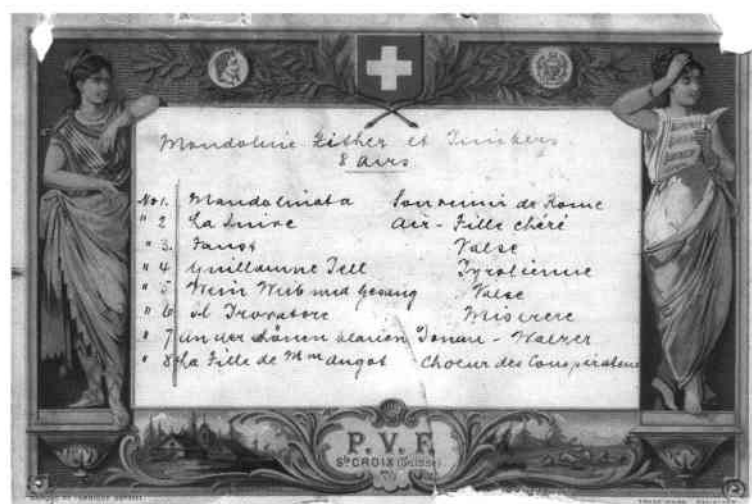 Mandoline Zither et Timbres
8 airs
No 1. Mandolinata Souvenir de Rome
" 2 La Juive Air - Fille chéré
" 3. Faust Valse
" 4 Guillaume Tell Tyrolienne
" 5 Wein Weib und Gesang Valse
" 6 Il Trovatore Miserere
" 7 An der schönen blauen Donau - Walzer
" 8 La Fille de Mme Angot Choeur des Conspirateurs
P. V. F.
Ste CROIX (SUISSE)